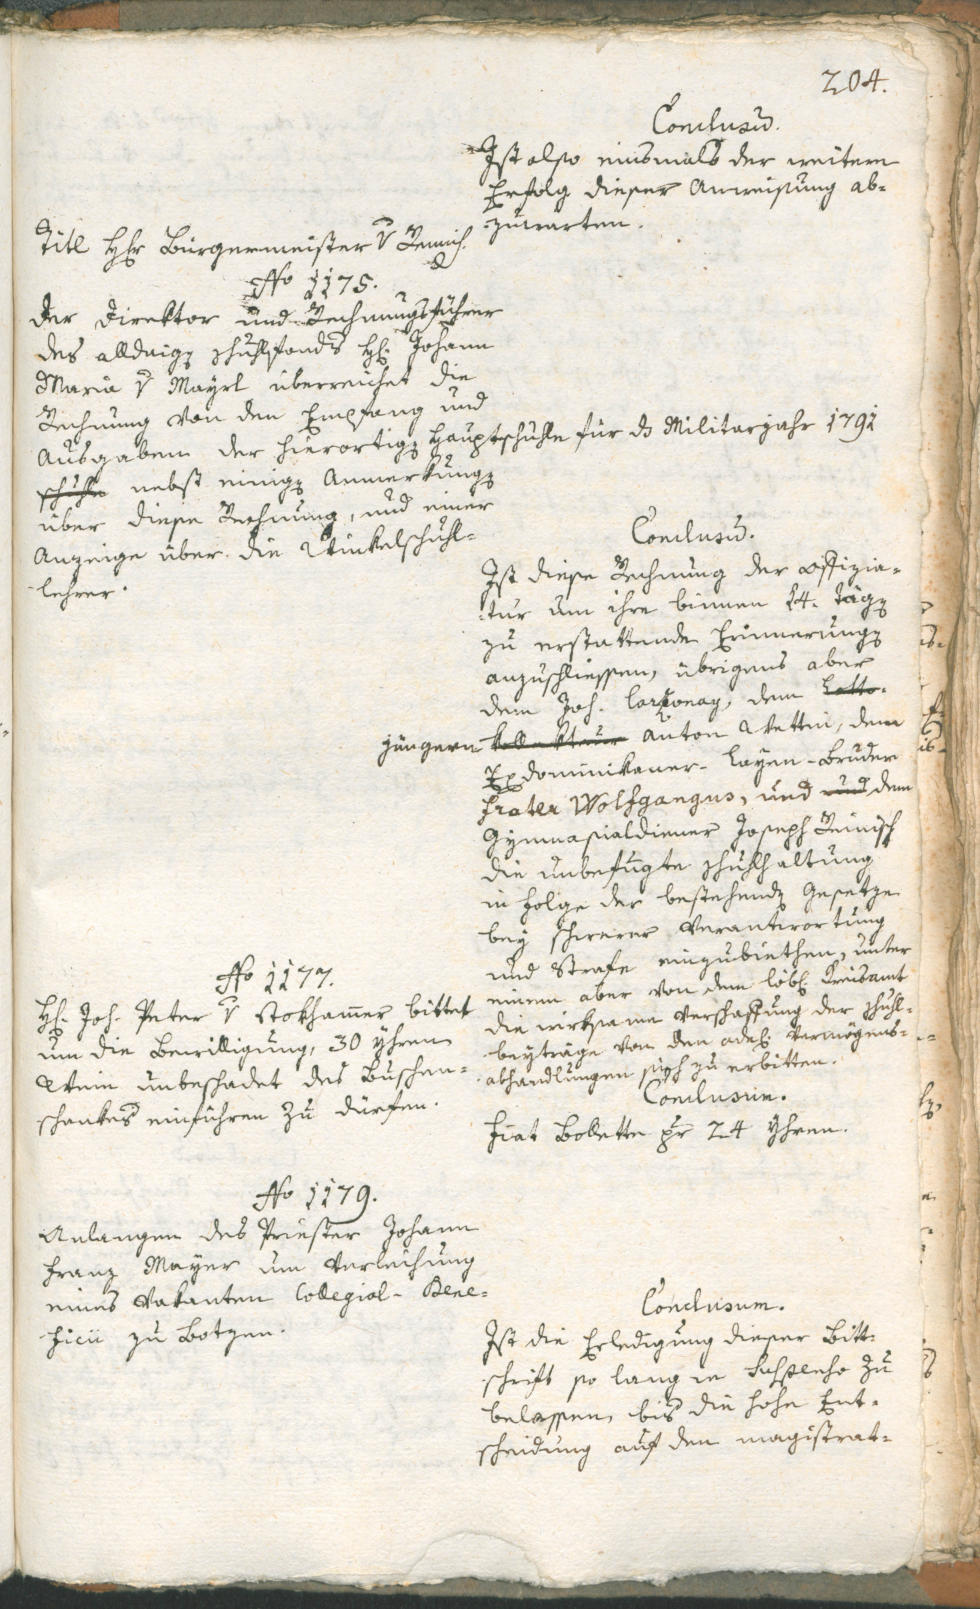 204.
Conclusum.
Ist also einsmals der weitern
Erfolg dieser Anweisung ab=
zuwarten.
Titl Hr Bürgermeister v
No 1175.
der Direktor und Rechnungsführer
des alldaig. Schuhlfonds H: Johann
Maria v Mayrl überreichet die
Rechnung von den Empfang und
Ausgaben der hierortig. Hauptschuhle für d. Militarjahr 1791
schuhle nebst einig. Anmerkung.
über diese Rechnung, und einer
Anzeige über die Winkelschuhl=
lehrer.
Conclusum.
Ist diese Rechnung der Offizia=
tur um ihre binnen 14. Täg.
zu erstattende Erinnerung.
anzuschliessen, übrigens aber
dem Joh. Carzonay, dem Lotto=
jüngern kollekteur Anton Wettin, dem
Exdominikaner-Layen-Bruder
frater Wolfgangus, und und dem
Gymnasialdiener Joseph Reinisch
die unbefugte Schuhlhaltung
in Folge der bestehend. Gesetze
bey schwerer Verantwortung
und Strafe einzubiethen, unter
einem aber von dem löbl. Kreisamt
die wirksame Verschaffung der Schuhl=
beyträge von den adel. Vermögens=
abhandlungen sich zu erbitten.
No 1177.
H: Joh. Peter v Stokhamer bittet
um die Bewilligung, 30 Yhren
Wein unbeschadet des Buschen=
schankes einführen zu dürfen.
Conclusum.
Fiat Bollette pr 24 Yhren.
No 1179.
Anlangen des Priester Johann
Franz Mayer um Verleihung
eines vakanten Collegial-Bene=
ficii zu Botzen.
Conclusum.
Ist die Erledigung dieser Bitt=
schrift so lang in Suspenso zu
belassen, bis die hohe Ent=
scheidung auf den magistrat=